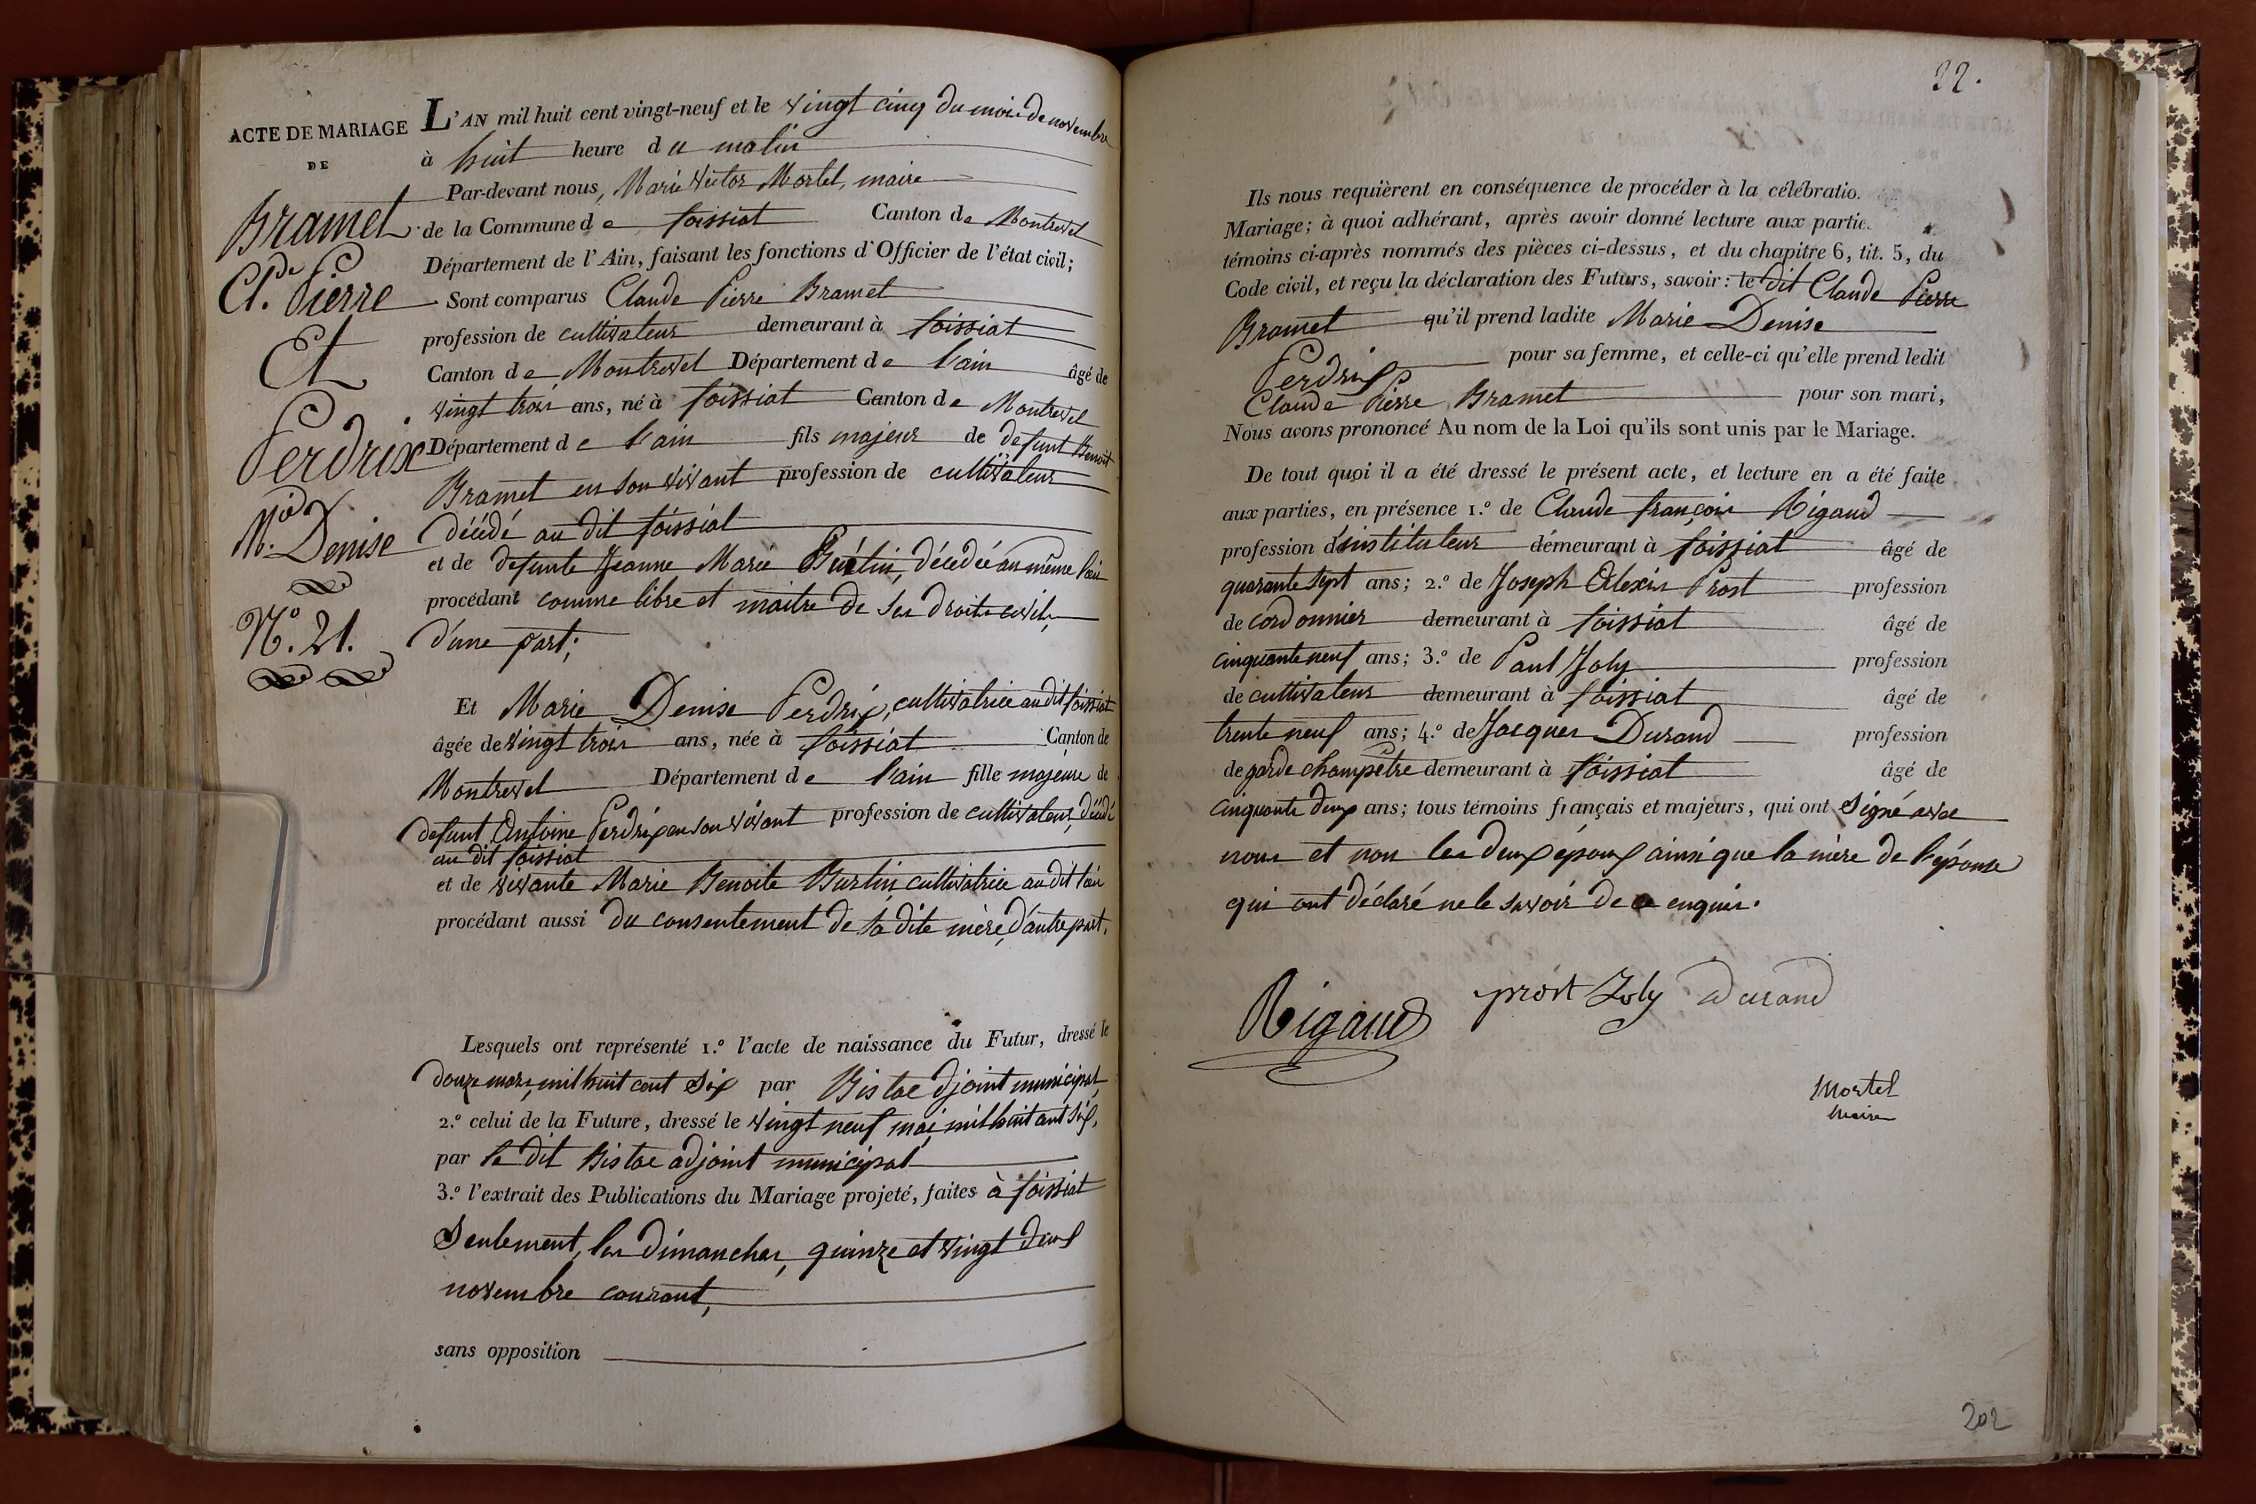 ACTE DE MARIAGE
DE
Bramet
Cl.de Pierre
Et
Perdrix
M.ie Denise
N.o 21.
L'AN mil huit cent vingt-neuf et le vingt cinq du mois de novembre
à huit heure du matin
Par-devant nous, Marie Victor Mortel, maire
de la Commune de foissiat Canton de Montrevel
Département de l'Ain, faisant les fonctions d'Officier de l'état civil;
Sont comparus Claude Pierre Bramet
profession de cultivateur demeurant à foissiat
Canton de Montrevel Département de l'ain âgé de
vingt trois ans, né à foissiat Canton de Montrevel
Département de l'ain fils majeur de defunt Benoit
Bramet en son vivant profession de cultivateur
décédé au dit foissiat
et de defunte Jeanne Marie décédée au même lieu
procédant comme libre et maitre de ses droits civils,
d'une part;
Et Marie Denise Perdrix, cultivatrice au dit foissiat
âgée de vingt trois ans, née à foissiat Canton de
Montrevel Département de l'ain fille majeure de
defunt Antoine Perdrix en son vivant profession de cultivateur, décédé
au dit foissiat
et de vivante Marie Benoite Burtin cultivatrice au dit lieu
procédant aussi du consentement de sa dite mère, d'autre part,
Lesquels ont représenté 1.o l'acte de naissance du Futur, dressé le
douze mars, mil huit cent six par Bistac adjoint municipal,
2.o celui de la Future, dressé le vingt neuf mai mil huit cent six,
par le dit Bistac adjoint municipal
3.o l'extrait des Publications du Mariage projeté, faites à foissiat
Seulement, les dimanches, quinze et vingt deux
novembre courant,
sans opposition
22.
Ils nous requièrent en conséquence de procéder à la célébratio.
Mariage; à quoi adhérant, après avoir donné lecture aux partie.
témoins ci-après nommés des pièces ci-dessus, et du chapitre 6, tit. 5, du
Code civil, et reçu la déclaration des Futurs, savoir: le dit Claude Pierre
Bramet qu'il prend ladite Marie Denise
Perdrix pour sa femme, et celle-ci qu'elle prend ledit
Claude Pierre Bramet pour son mari,
Nous avons prononcé Au nom de la Loi qu'ils sont unis par le Mariage.
De tout quoi il a été dressé le présent acte, et lecture en a été faite
aux parties, en présence 1.o de Claude françois Rigaud
profession d'instituteur demeurant à foissiat âgé de
quarante sept ans; 2.o de Joseph Alexis Prost profession
de cordonnier demeurant à foissiat âgé de
cinquante neuf ans; 3.o de Paul Joly profession
de cultivateur demeurant à foissiat âgé de
trente neuf ans; 4.o de Jacques Durand profession
de garde champêtre demeurant à foissiat âgé de
cinquante deux ans; tous témoins français et majeurs, qui ont signé avec
nous et non les deux époux ainsi que la mère de l'épouse
qui ont déclaré ne le savoir de ce enquis.
Rigaud prost Joly durand
Mortel
maire
202